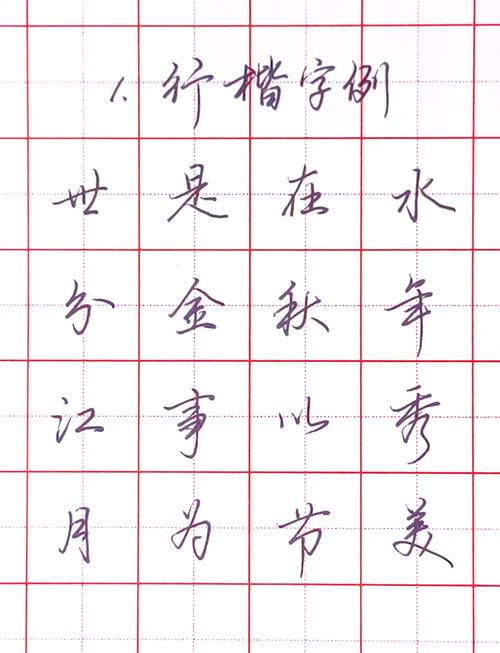 1. 行楷字例
世是在水
分金秋年
江事以秀
月为节美